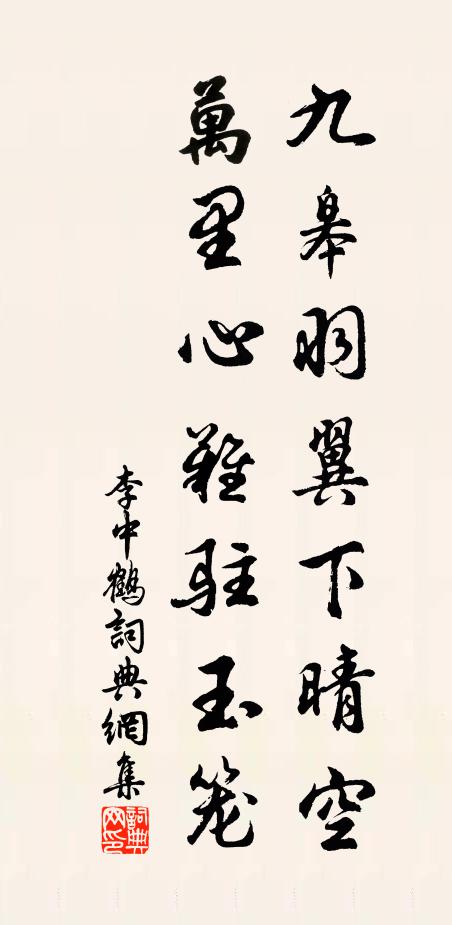 九皋羽翼下晴空
萬里心難駐玉笼
李中鶴詞典網集
詞典网印